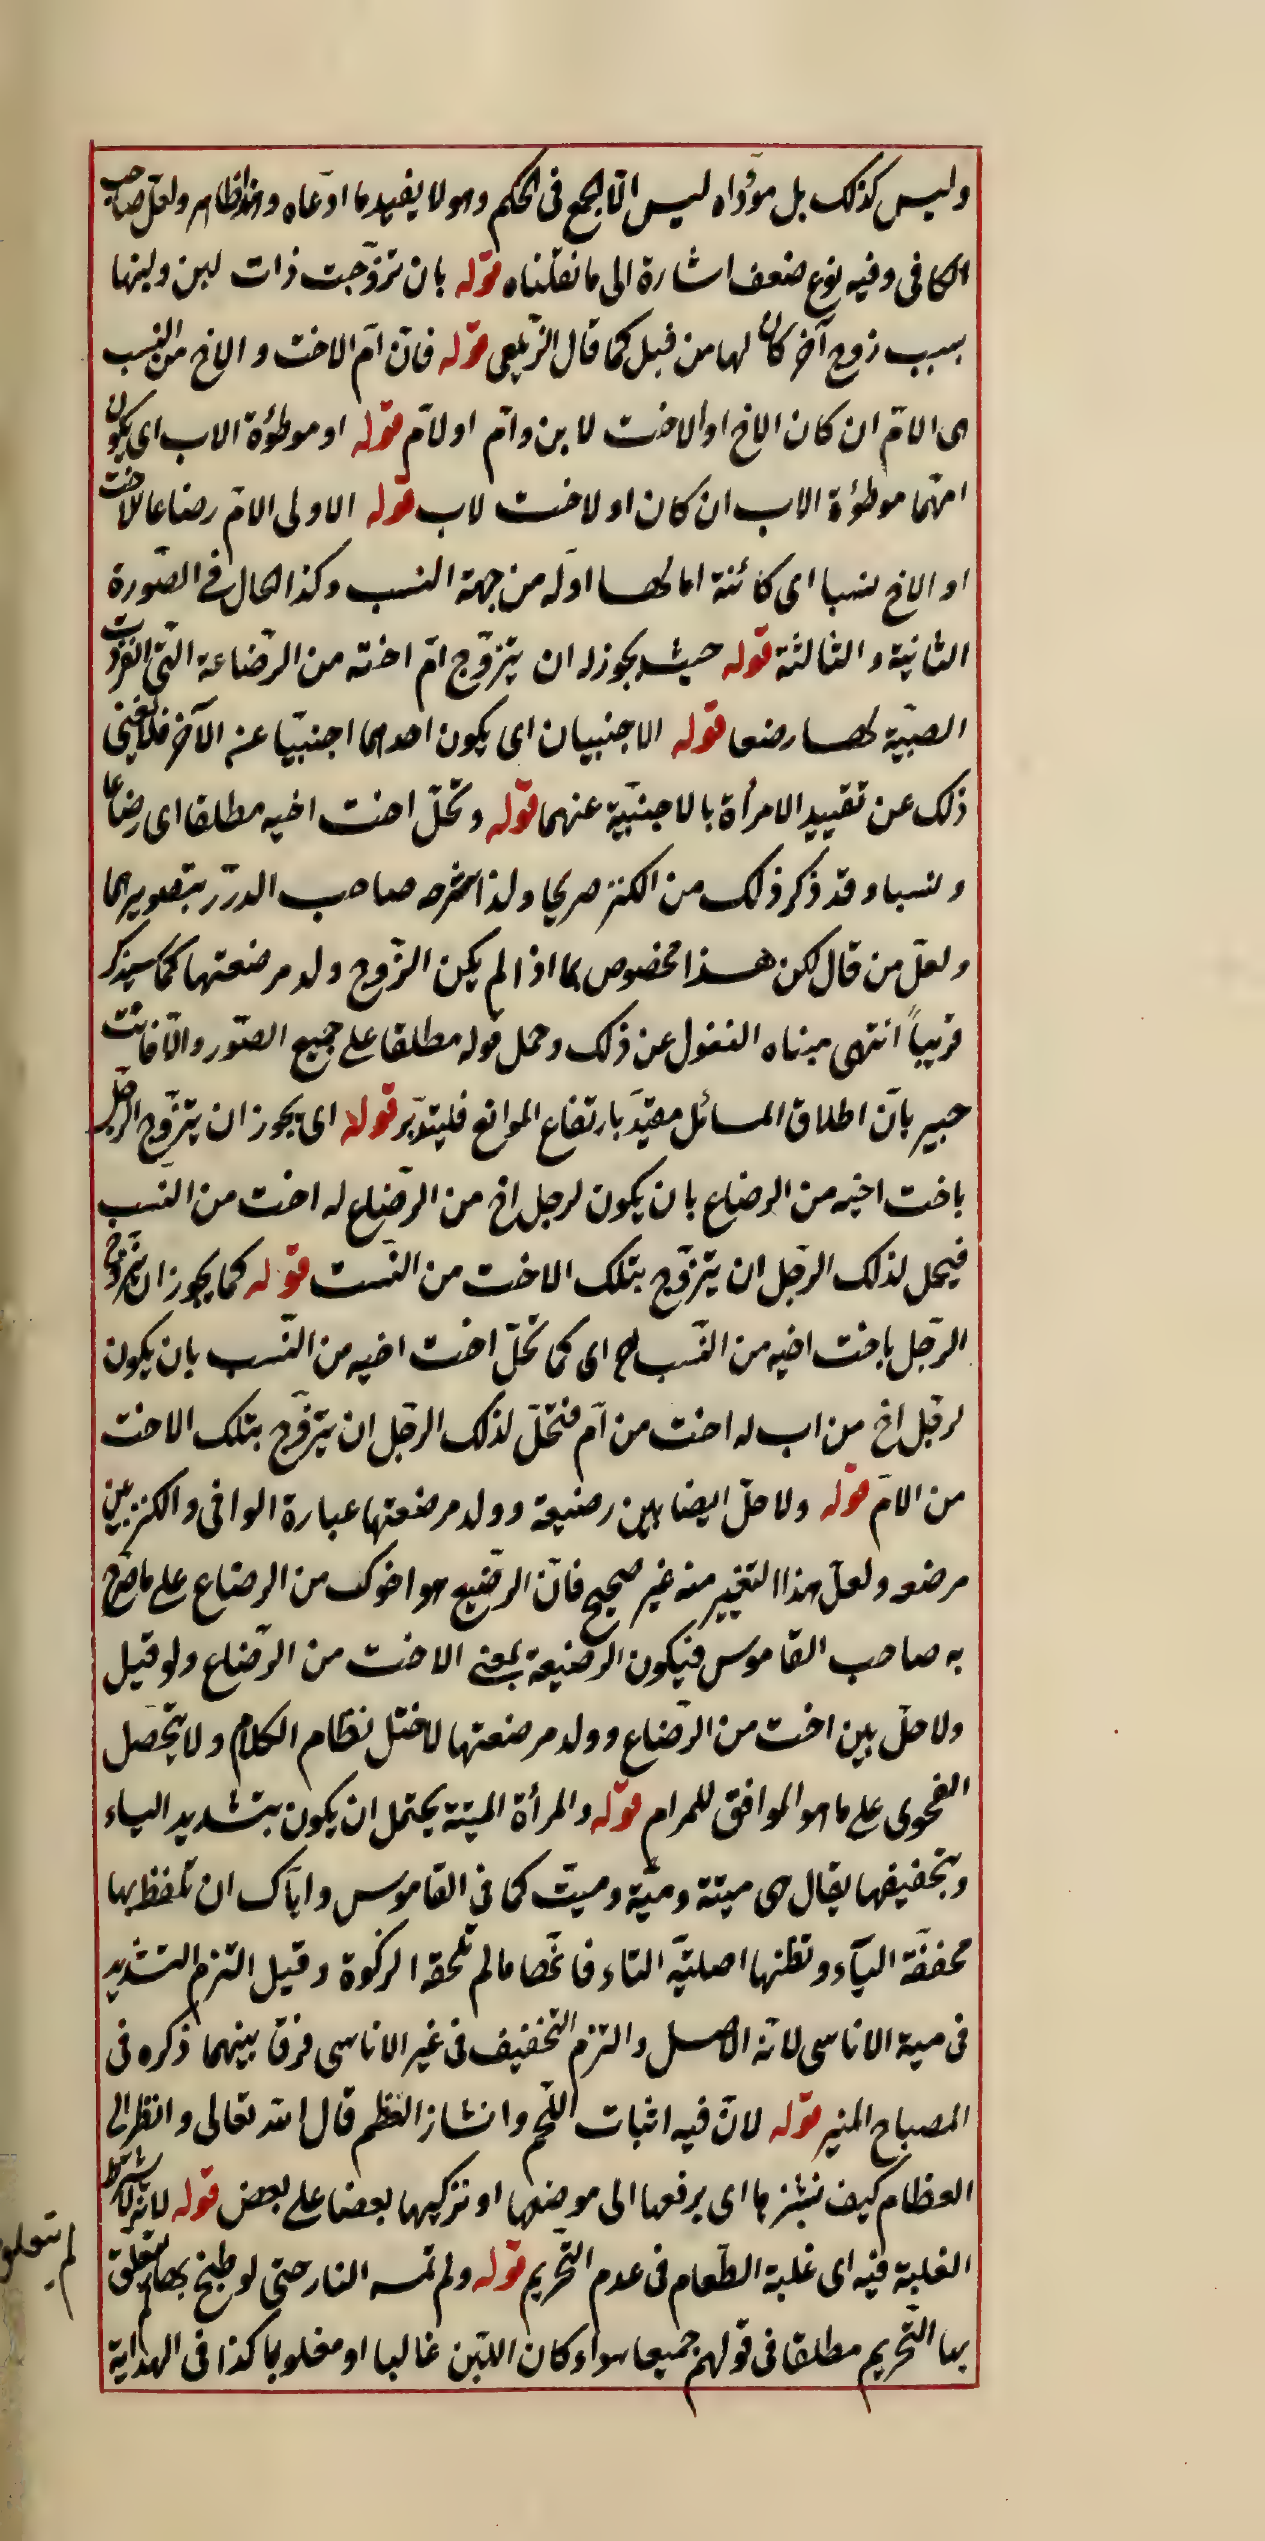 وليس كذلك بل مؤداه ليس الا الجمع فى الحكم وهو لا يفيد ما ادعاه وهذا ظاهر ولعل صاحب
الكافى وفيه نوع ضعف اشارة الى ما نقلناه قوله بان تزوجت ذات لبن ولبنها
بسبب زوج آخر كان لها من قبل كما قال الزيلعى قوله فان ام الاخت والاخ من النسب
هى الام ان كان الاخ او الاخت لاب وام او لام قوله او موطؤة الاب اى يكون
امهما موطؤة الاب ان كان او لاخت لاب قوله الاولى الام رضاعا لاخت
او الاخ نسبا اى كائنة اما لها اوله من جهة النسب وكذا الحال فى الصورة
الثانية والثالثة قوله حيث يجوز له ان يتزوج ام اخته من الرضاعة التى انفردت
الصبية لها رضعا قوله الاجنبيان اى يكون احدهما اجنبيا عن الآخر فلا يغنى
ذلك عن تقييد الامرأة بالاجنبية عنهما قوله وتحل اخت اخيه مطلقا اى رضاعا
ونسبا وقد ذكر ذلك من الكنز صريحا ولذا شرحه صاحب الدرر بتصويرهما
ولعل من قال لكن هذا مخصوص بما اذا لم يكن الزوج ولد مرضعتها كما سيذكر
قريبا انتهى مبناه الغفول عن ذلك وحمل قوله مطلقا على جميع الصور والا فانت
خبير بان اطلاق المسائل مقيد بارتفاع الموانع فليتدبر قوله اى يجوز ان يتزوج الرجل
باخت اخيه من الرضاع بان يكون لرجل اخ من الرضاع له اخت من النسب
فيحل لذلك الرجل ان يتزوج بتلك الاخت من النسب قوله كما يجوز ان يتزوج
الرجل باخت اخيه من النسب اى كما تحل اخت اخيه من النسب بان يكون
لرجل اخ من اب له اخت من ام فتحل لذلك الرجل ان يتزوج بتلك الاخت
من الام قوله ولا حل ايضا بين رضيعة وولد مرضعتها عبارة الوافى والكنز بين
مرضعه ولعل هذا التغيير منه غير صحيح فان الرضيع هو اخوك من الرضاع على ما صرح
به صاحب القاموس فيكون الرضيعة بمعنى الاخت من الرضاع ولو قيل
ولا حل بين اخت من الرضاع وولد مرضعتها لاختل نظام الكلام ولا يتحصل
الفحوى على ما هو الموافق للمرام قوله والمرأة الميتة يحتمل ان يكون بتشديد الياء
وبتخفيفها يقال هى ميتة وميّة وميت كما فى القاموس واياك ان تلفظ بها
مخففة الياء وتظنها اصلية التاء فانها ما لم تلحقه الزكوة وقيل التزم التشديد
فى ميتة الاناسى لانه الاصل والتزم التخفيف فى غير الاناسى فرقا بينهما ذكره فى
المصباح المنير قوله لان فيه اثبات اللحم وانشاز العظم قال الله تعالى وانظر الى
العظام كيف ننشزها اى نرفعها الى موضعها او نركبها بعضا على بعض قوله لانه لا يشترط
الغلبة فيه اى غلبة الطعام فى عدم التحريم قوله ولم تمسه النار حتى لو طبخ بها لم يتعلق
بها التحريم مطلقا فى قولهم جميعا سواء كان اللبن غالبا او مغلوبا كذا فى الهداية
لم يتعلق